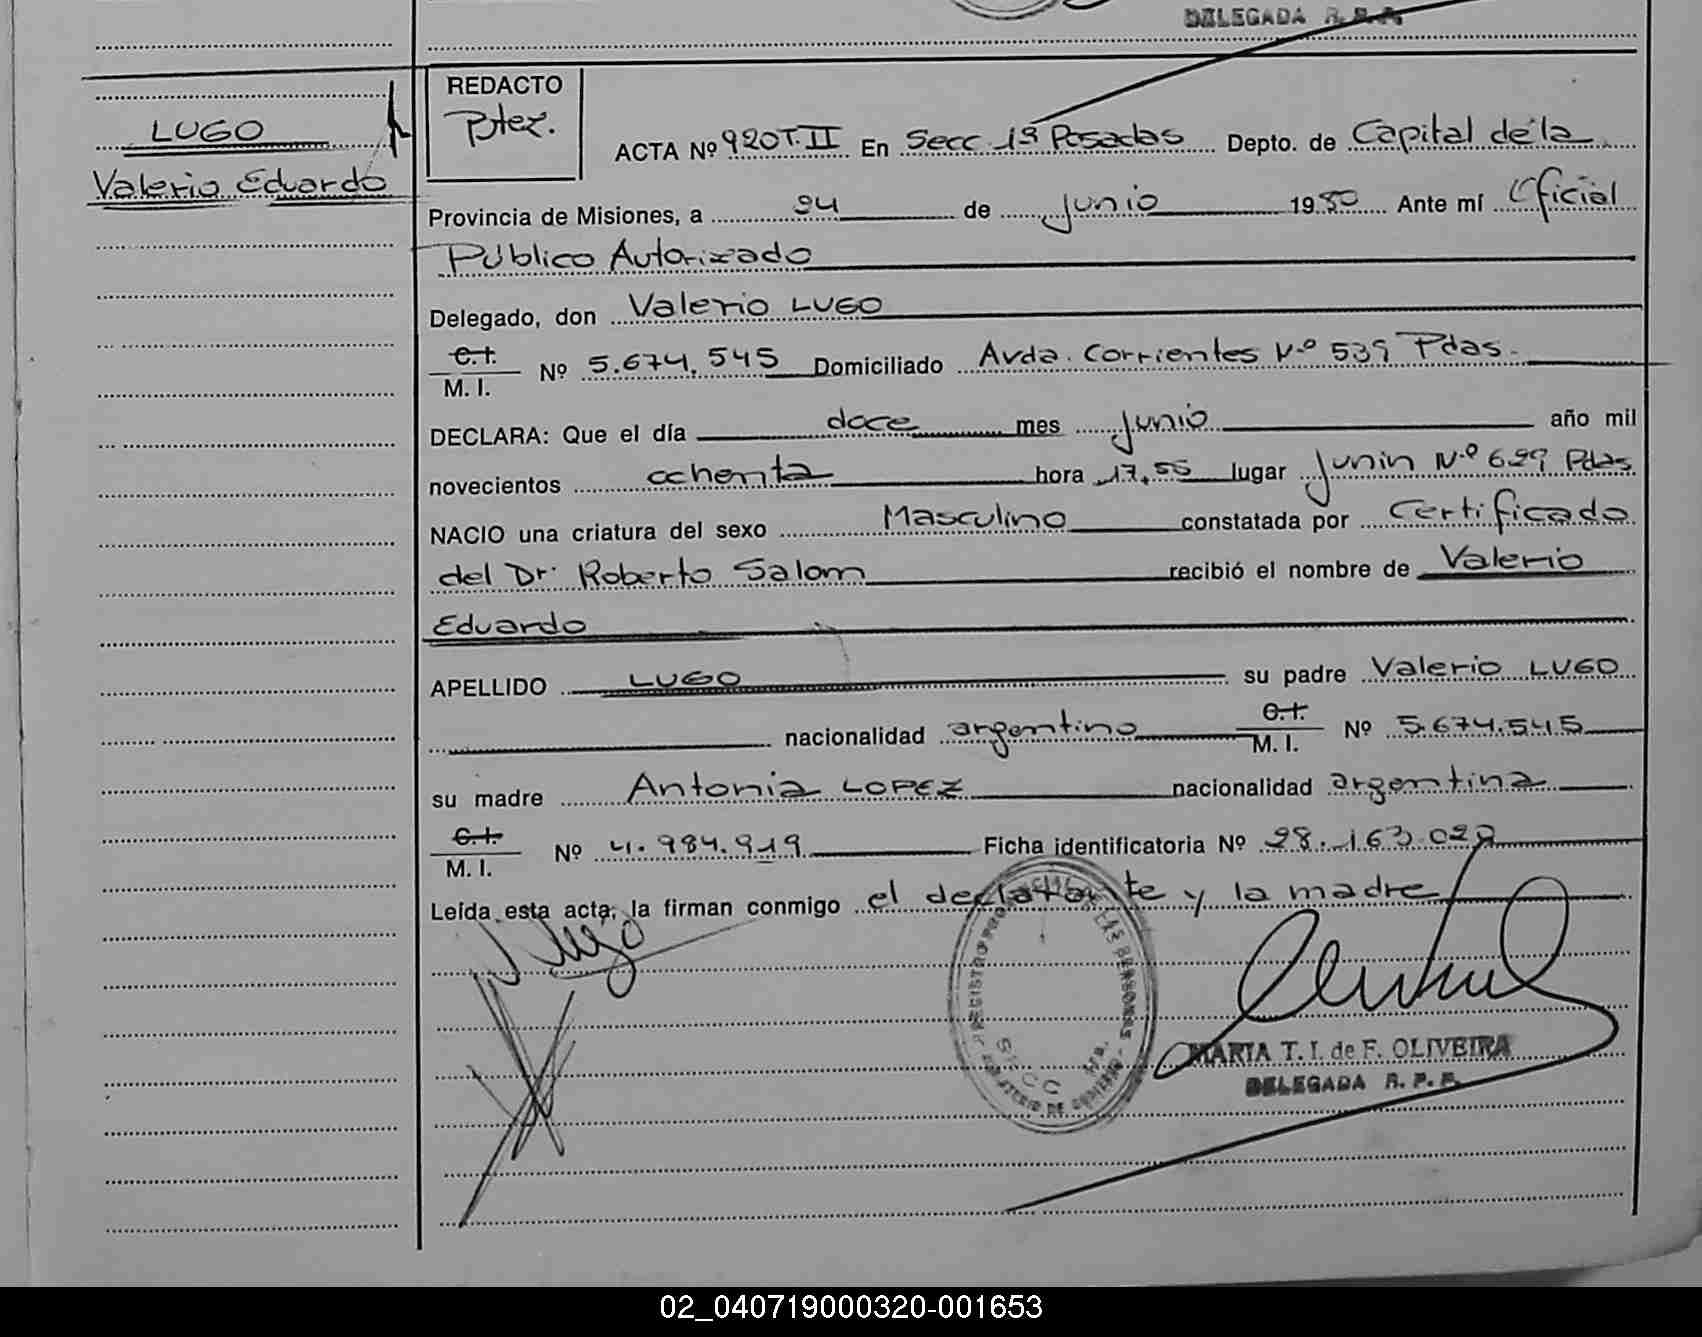 DELEGADA R.P.P.
LUGO
Valerio Eduardo
REDACTO
ACTA Nº 920 T.II En Secc 1ª Posadas Depto. de Capital de la
Provincia de Misiones, a 24 de junio 1980 Ante mí Oficial
Público Autorizado
Delegado, don Valerio LUGO
C.I.
M. I. Nº 5.674.545 Domiciliado Avda. Corrientes Nº 539 Pdas.
DECLARA: Que el día doce mes junio año mil
novecientos ochenta hora 17,55 lugar Junin Nº 629 Pdas
NACIO una criatura del sexo Masculino constatada por Certificado
del Dr. Roberto Salom recibió el nombre de Valerio
Eduardo
APELLIDO LUGO su padre Valerio LUGO
nacionalidad argentino C.I. M. I. Nº 5.674.545
su madre Antonia LOPEZ nacionalidad argentina
C.I.
M. I. Nº 4.984.919 Ficha identificatoria Nº 28.163.022
Leída esta acta, la firman conmigo el declarante y la madre
V Lugo
REGISTRO DE LAS PERSONAS
SECC 1ra.
MARIA T. I. de F. OLIVEIRA
DELEGADA R. P. P.
02_040719000320-001653